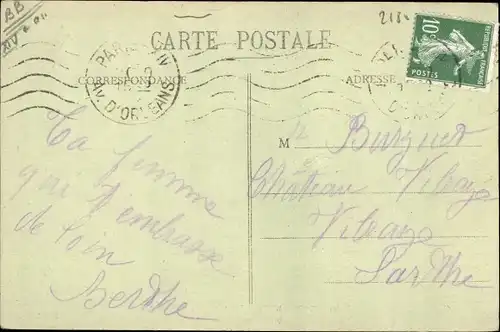 BB
218
CARTE POSTALE
CORRESPONDANCE
ADRESSE
PARIS XIV
AV. D'ORLEANS
10c
REPUBLIQUE FRANÇAISE
POSTES
Ta femme
qui t'embrasse
de loin
Berthe
M
Château Vibraye
Vibraye
Sarthe